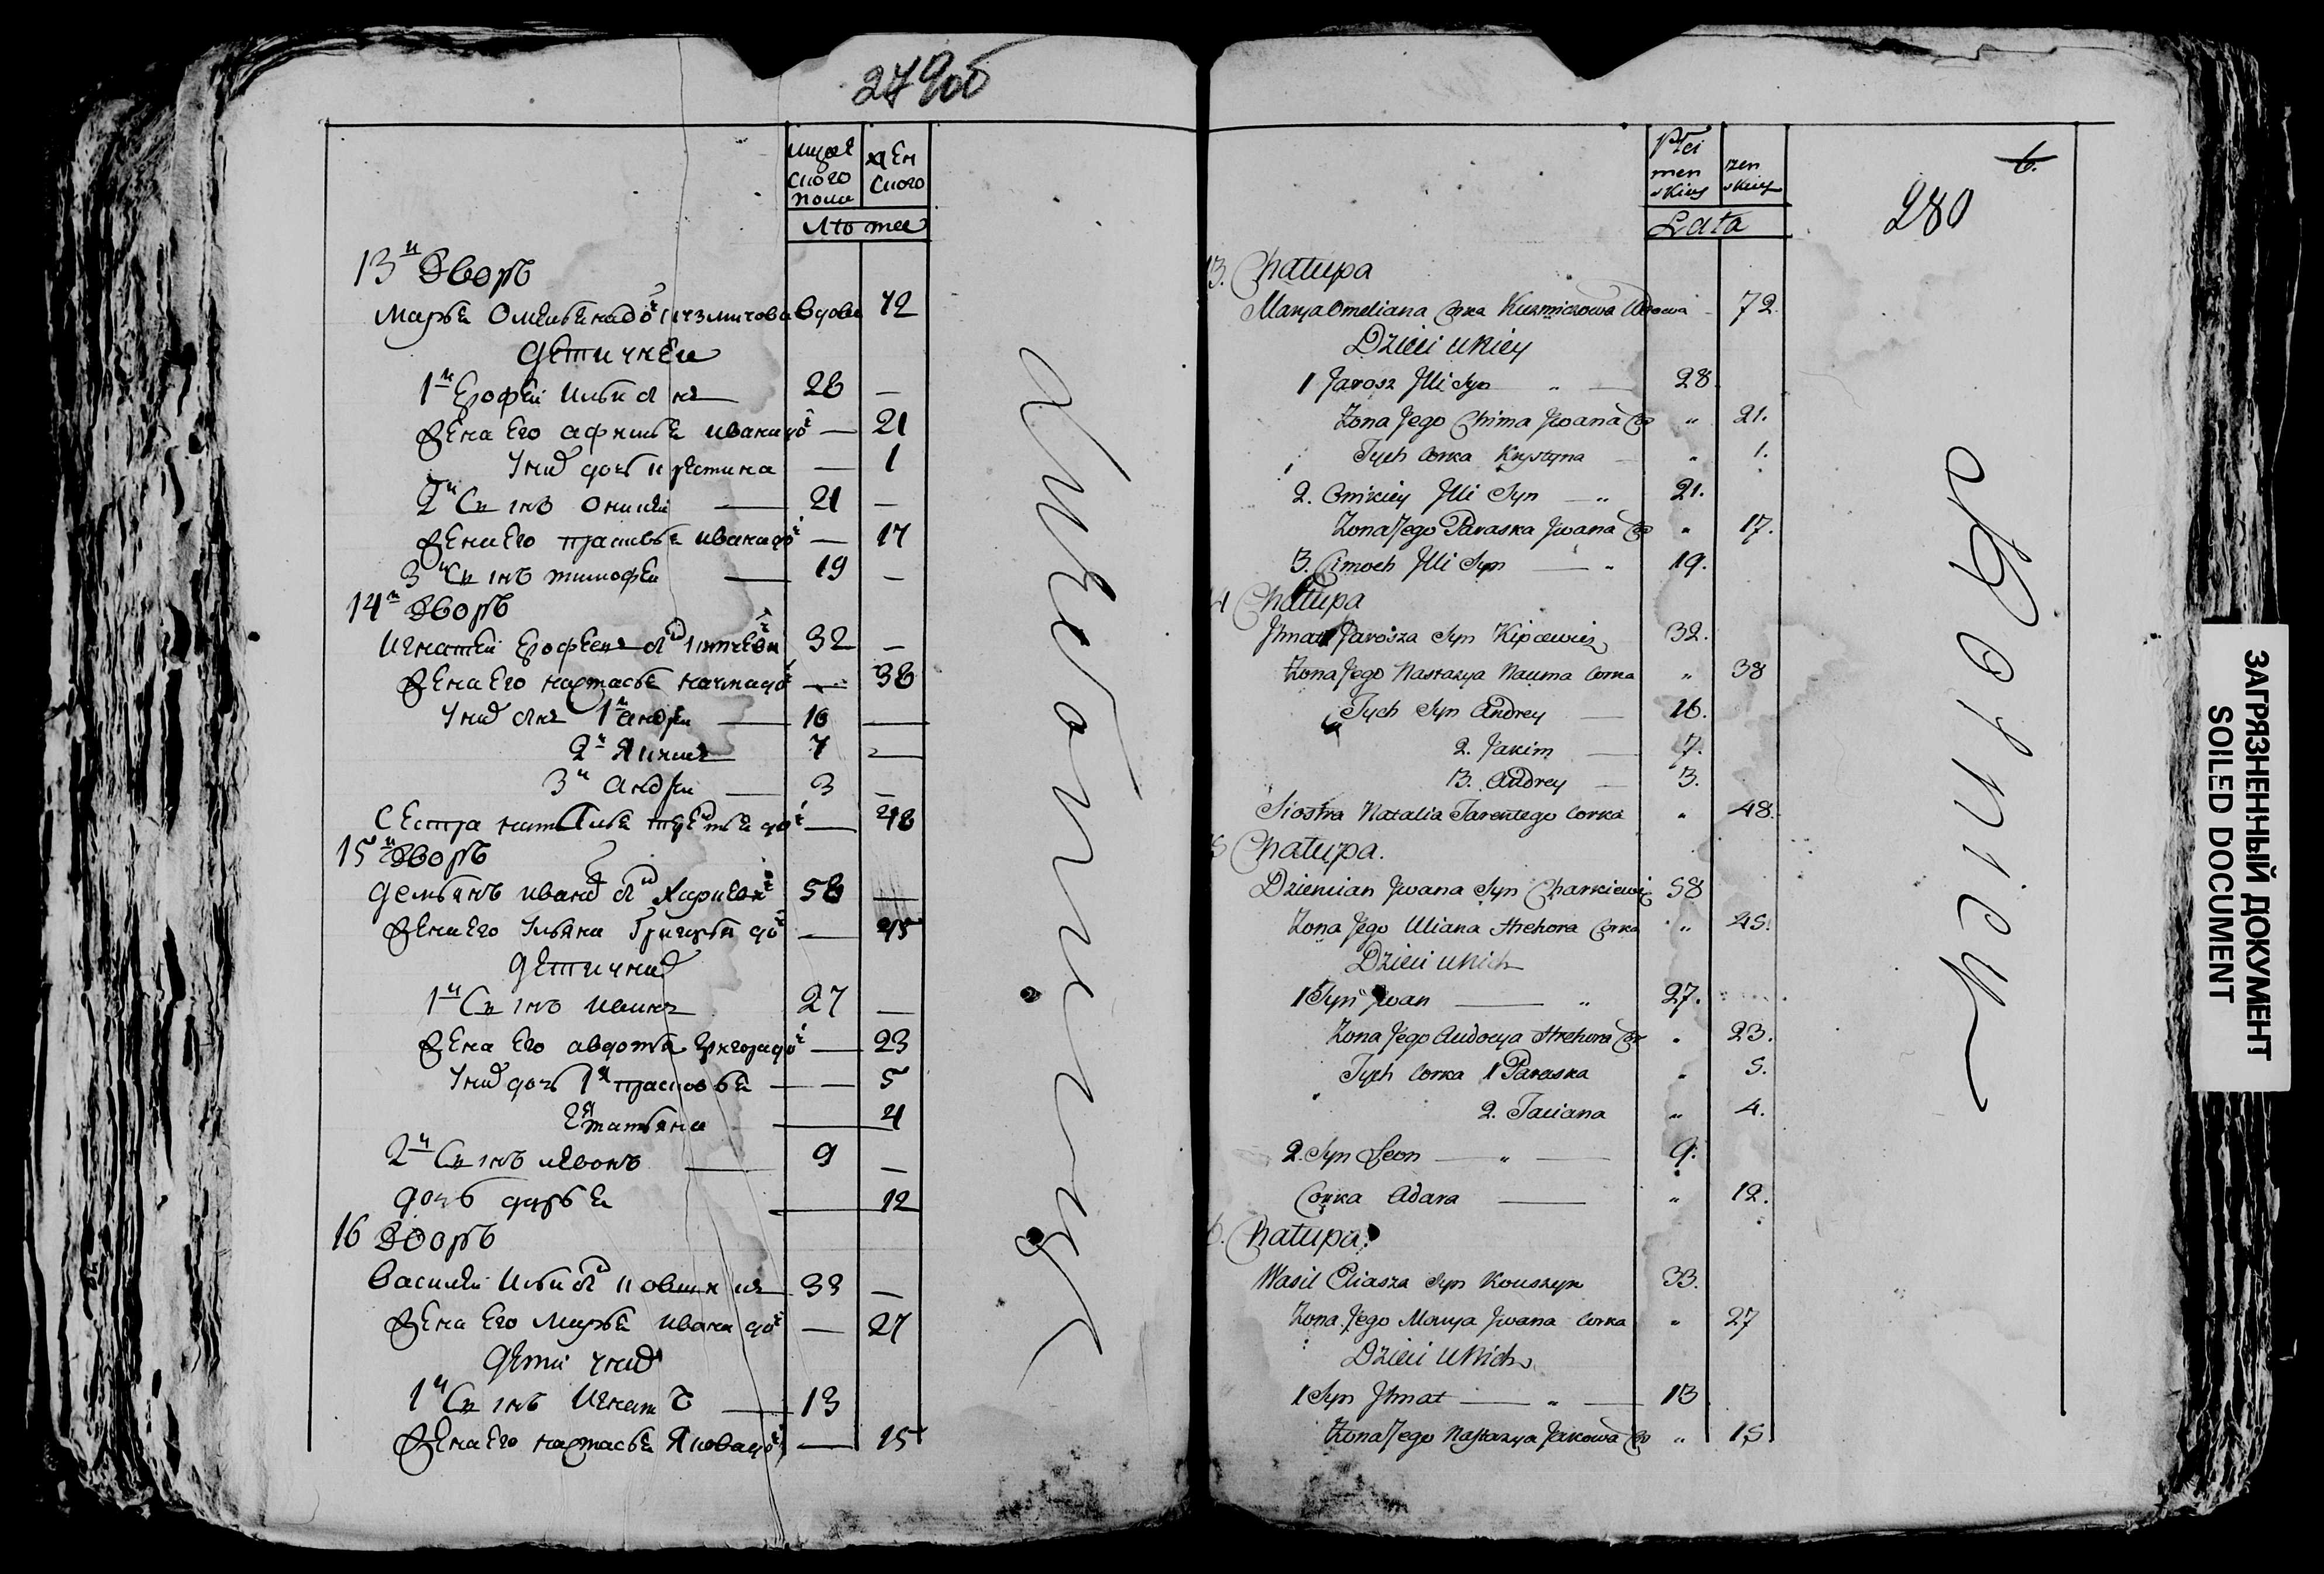 279об
мужескога полу
женскаго
лѣта
13й Дворъ
Марья Омельена доч Кузмичова вдова 72
дети у нее
1й Ерофей Ильи сынъ 28 —
жена его Афимья Ивана доч — 21
у них дочь Кристина — 1
2й сынъ Оникей 21 —
жена его Прасковья Ивана доч — 17
3й сынъ Тимофей 19 —
14й Дворъ
Игнатей Ерофеев сын 32 —
жена его Настасья Наума доч — 38
у них сын 1й Андрей 16 —
2й Яким 7 —
3й Андрей 3 —
Сестра Наталья доч — 48
15й Дворъ
Демьянъ Ивана сын 58 —
жена его Ульяна Григорья доч — 45
дети у них
1й сынъ Иванъ 27 —
жена его Авдотья Григора доч — 23
у них дочь 1я Прасковья — 5
2я Татьяна — 4
2й сынъ Левонъ 9 —
дочь Дарья — 12
16 Дворъ
Василей Ильи сын 33 —
жена его Марья Ивана доч — 27
дети у них
1й сынъ Игнатъ 13
жена его Настасья Якова доч — 15
280
6.
Płci menskiey
zenskiey
Lata
13. Chałupa
Marya Omeliana Corka Kuzmiczowa Wdowa 72.
Dzieci u Niey
1 Jarosz Illi Syn „ 28
Zona Jego Chima Jwana Co „ 21.
Tych Corka Krystyna „ 1.
2. Onikiey Illi Syn „ 21.
Zona Jego Paraska Jwana Co „ 17.
3. Cimoch Illi Syn „ 19.
14 Chałupa
Jhnat Jarosza Syn Kipcewicz 32.
Zona Jego Nastazya Nauma Corka „ 38
Tych Syn Andrey 16.
2. Jakim 7.
3. Andrey 3.
Siostra Natalia Tarentego Corka „ 48.
15 Chałupa.
Dziemian Jwana Syn Charkiewic 58
Zona Jego Uliana Hrehora Corka „ 45.
Dzieci u Nich
1 Syn Jwan „ 27.
Zona Jego Audocya Hrehora Cor „ 23.
Tych Corka 1 Paraska „ 5.
2. Taciana „ 4.
2. Syn Leon „ 9.
Corka Adara „ 12.
16. Chałupa.
Wasil Eliasza Syn Kouszyk 33.
Zona Jego Marya Jwana Corka „ 27
Dzieci u Nich
1 Syn Jhnat „ 13
Zona Jego Nastazya Jakowa Co „ 15
ЗАГРЯЗНЕННЫЙ ДОКУМЕНТ
SOILED DOCUMENT